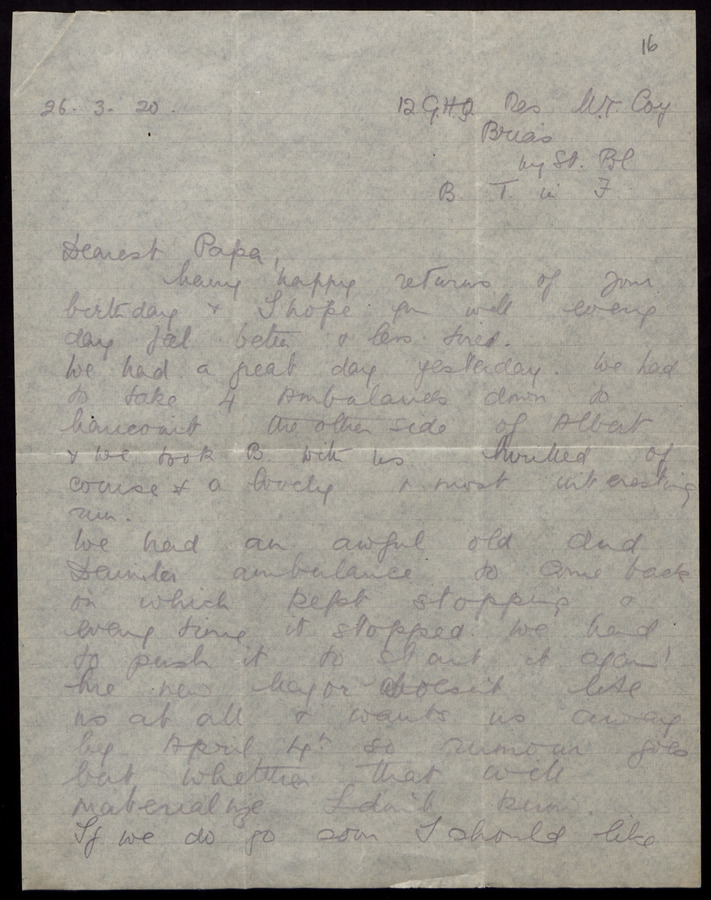 16
26. 3. 20.
12 G.H.Q. Res M.T. Coy
B. T. in F
Dearest Papa,
Many happy returns of your
birthday & I hope you will every
day feel better & less tired.
We had a great day yesterday. We had
to take 4 Ambulances down to
Hancourt the other side of Albert
& we took B. with us thrilled of
course & a lovely & most interesting
run.
We had an awful old dud
Daimler ambulance to come back
in which kept stopping &
every time it stopped we had
to push it to start it again!
The new Major doesn't like
us at all & wants us away
by April 4th so rumour goes
but whether that will
materialize I don't know.
If we do go soon I should like